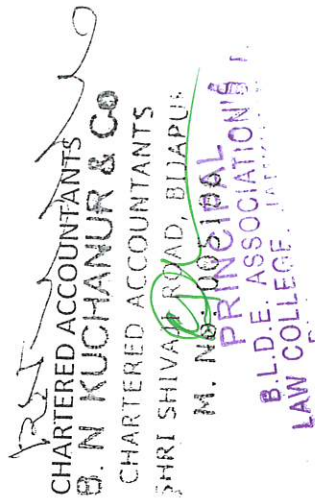 CHARTERED ACCOUNTANTS
B. N KUCHANUR & Co
CHARTERED ACCOUNTANTS
SHRI SHIVAJI ROAD, BIJAPUR
M. No.
PRINCIPAL
B.L.D.E ASSOCIATION'S
LAW COLLEGE.